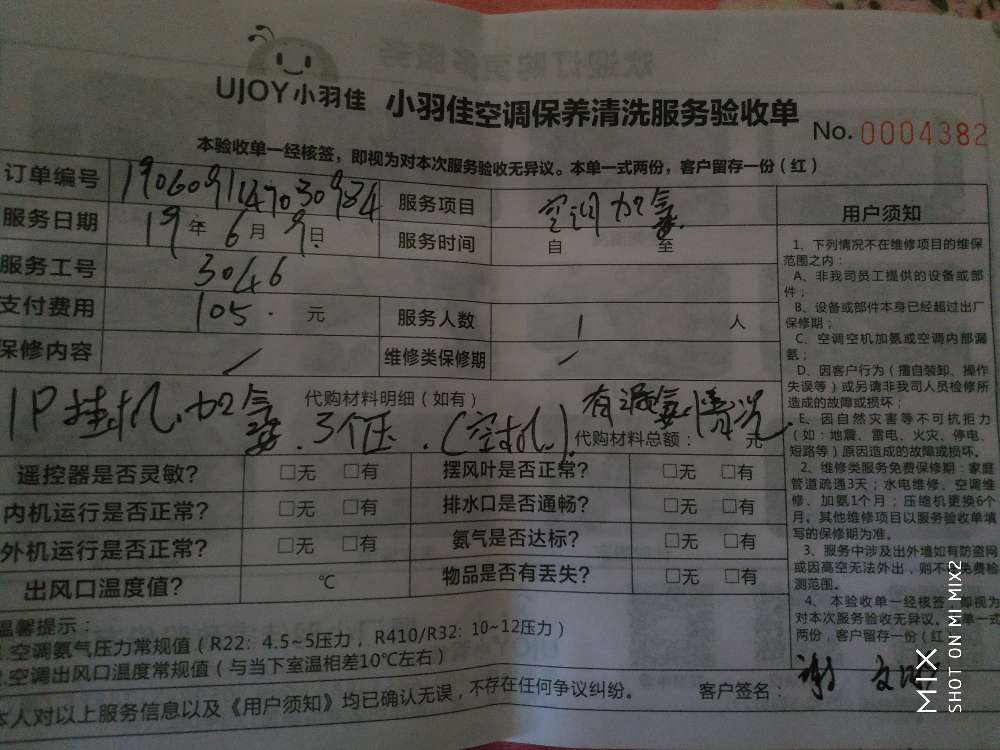 UJOY小羽佳 小羽佳空调保养清洗服务验收单
No. 0004382
本验收单一经核签，即视为对本次服务验收无异议。本单一式两份，客户留存一份（红）
订单编号 1906091147030984 服务项目 空调加氨
服务日期 19年6月9日 服务时间 自 至
服务工号 3046
支付费用 105. 元 服务人数 1 人
保修内容 / 维修类保修期 /
代购材料明细（如有）
1P挂机、加氨、3个压.（空机）. 有漏氨情况.
代购材料总额： 元
遥控器是否灵敏? □无 □有 摆风叶是否正常? □无 □有
内机运行是否正常? □无 □有 排水口是否通畅? □无 □有
外机运行是否正常? □无 □有 氨气是否达标? □无 □有
出风口温度值? ℃ 物品是否有丢失? □无 □有
温馨提示：
1.空调氨气压力常规值（R22：4.5~5压力，R410/R32：10~12压力）
2.空调出风口温度常规值（与当下室温相差10℃左右）
本人对以上服务信息以及《用户须知》均已确认无误，不存在任何争议纠纷。 客户签名： 谢文
用户须知
1、下列情况不在维修项目的维保
范围之内：
A、非我司员工提供的设备或部
件；
B、设备或部件本身已经超过出厂
保修期；
C、空调空机加氨或空调内部漏
氨；
D、因客户行为（擅自装卸、操作
失误等）或另请非我司人员检修所
造成的故障或损坏；
E、因自然灾害等不可抗拒力
（如：地震、雷电、火灾、停电、
短路等）原因造成的故障或损坏。
2、维修类服务免费保修期：家庭
管道疏通3天；水电维修、空调维
修、加氨1个月；压缩机更换6个
月。其他维修项目以服务验收单填
写的保修期为准。
3、服务中涉及出外墙如有防盗网
或因高空无法外出，则不免费检
测范围。
4、本验收单一经核签，即视为
对本次服务验收无异议。本单一式
两份，客户留存一份（红
MIX
SHOT ON MI MIX2